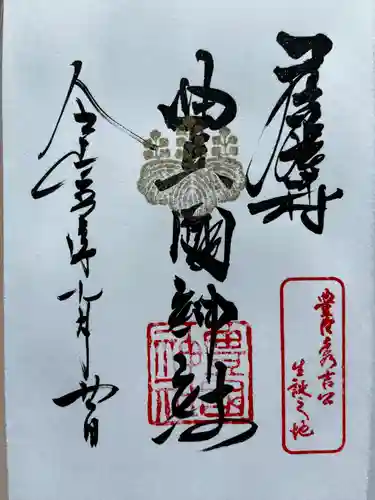 豊臣秀吉公
生誕之地
豊國神社
豊國
神社
令和五年九月廿日